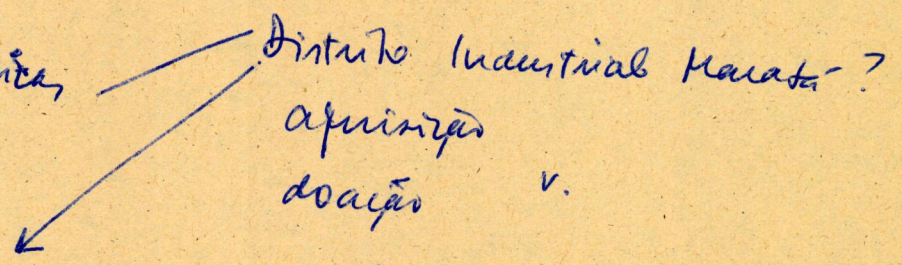 Distrito Industrial Maratá?
aquisição
doação v.